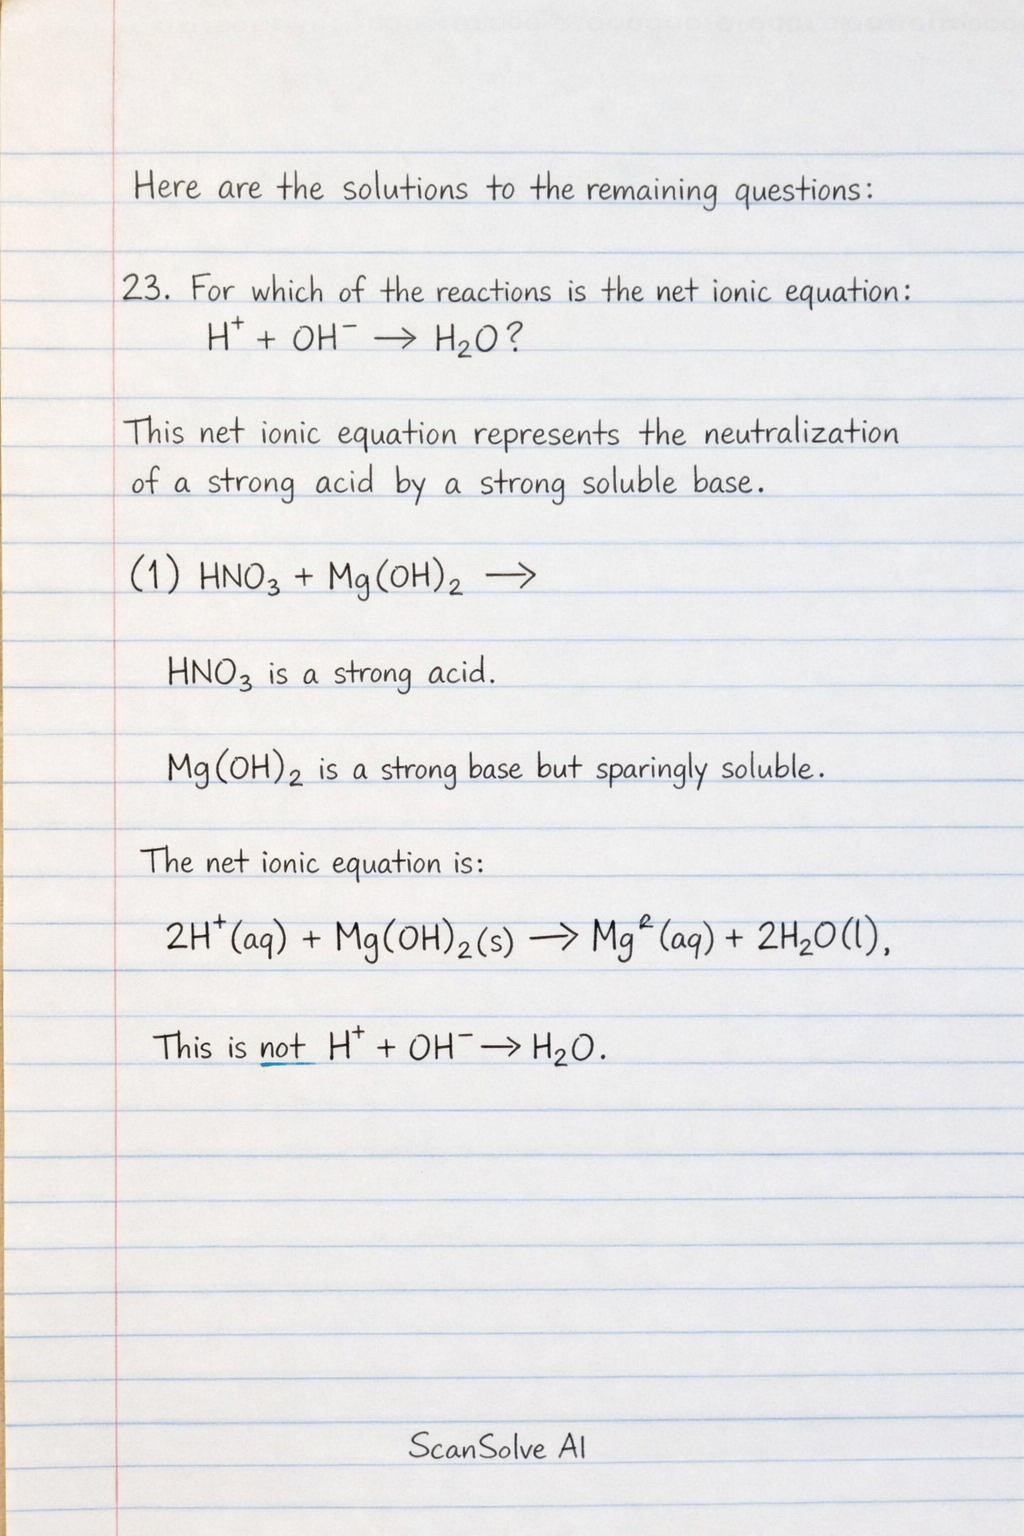 Here are the solutions to the remaining questions:
23. For which of the reactions is the net ionic equation:
H⁺ + OH⁻ → H₂O?
This net ionic equation represents the neutralization
of a strong acid by a strong soluble base.
(1) HNO₃ + Mg(OH)₂ →
HNO₃ is a strong acid.
Mg(OH)₂ is a strong base but sparingly soluble.
The net ionic equation is:
2H⁺(aq) + Mg(OH)₂(s) → Mg²(aq) + 2H₂O(l),
This is not H⁺ + OH⁻ → H₂O.
ScanSolve AI